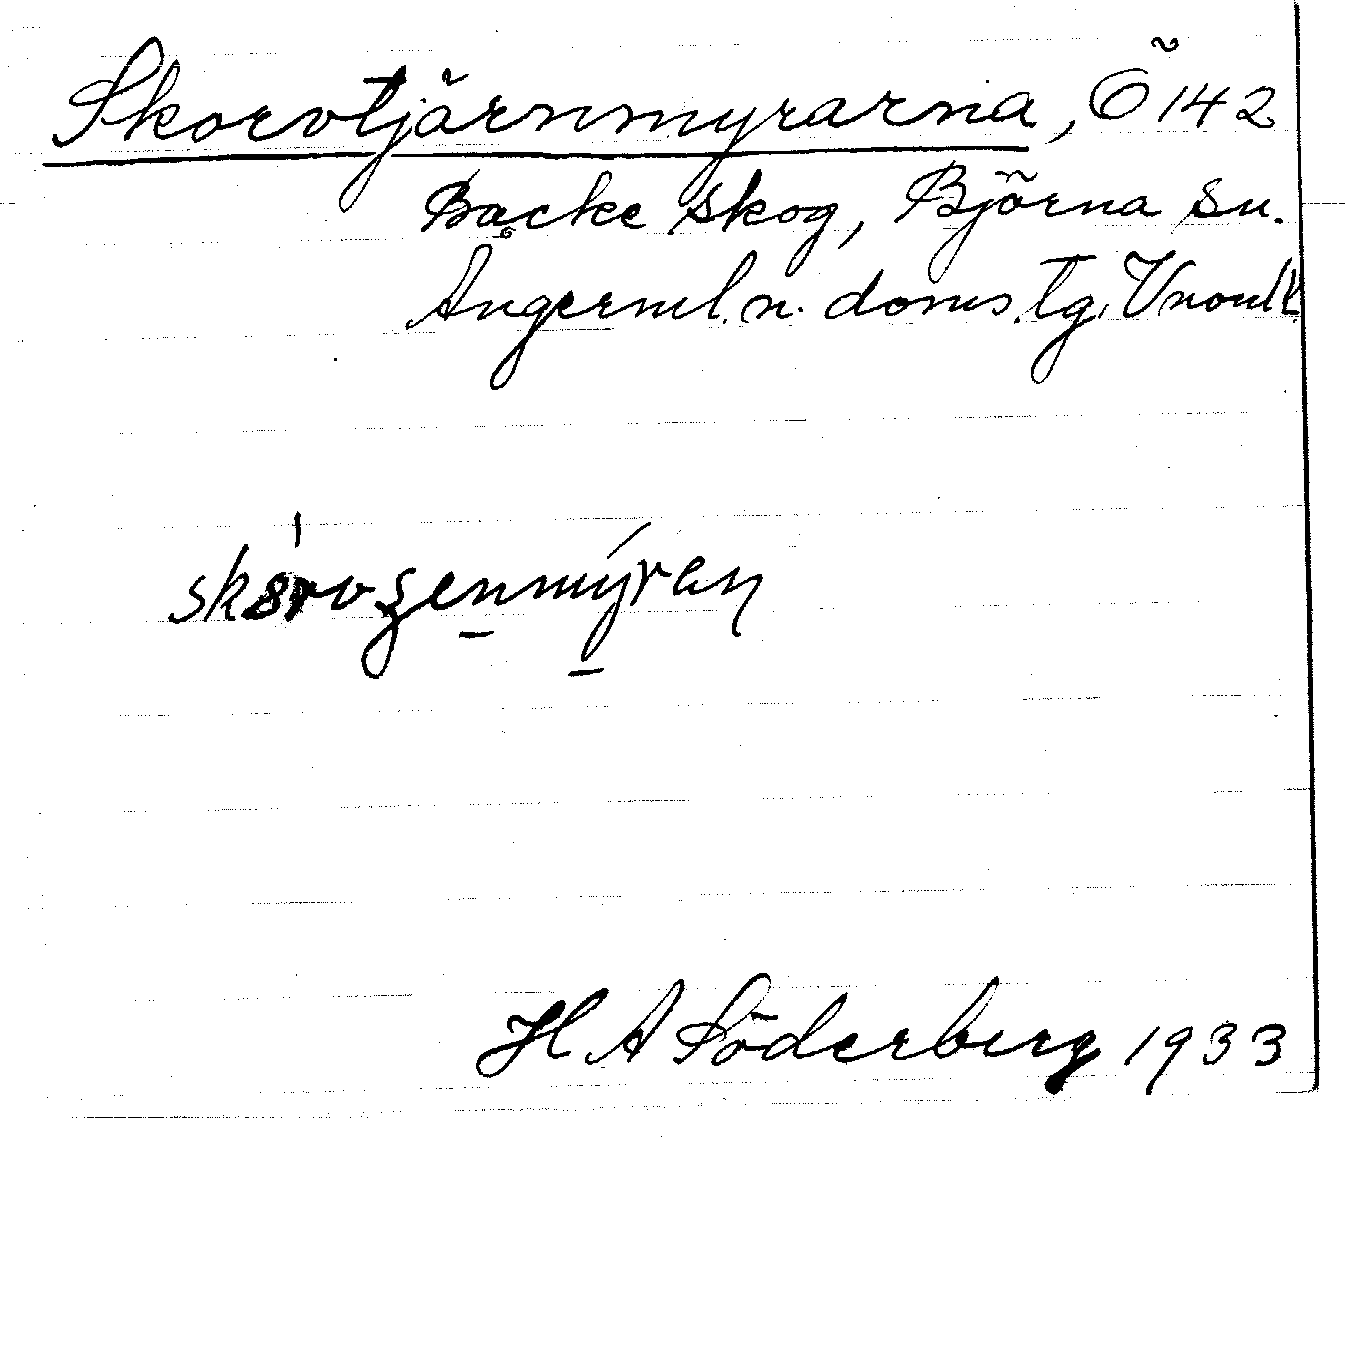 Skorvtjärnmyrarna, Ö 142
Backe skog, Björna sn.
Ångerml. n. doms. tg. Vnorrl.
H A Söderberg 1933